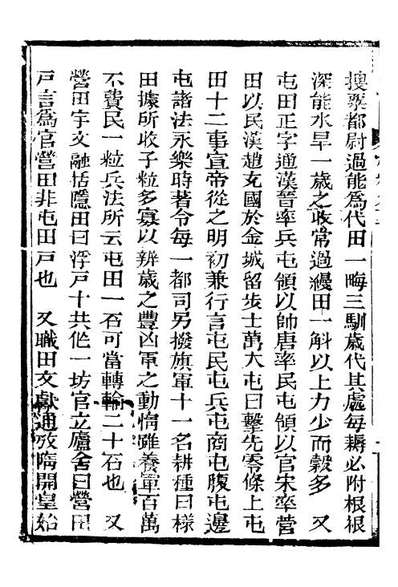 搜粟都尉過能爲代田一畮三甽歲代其處每耨必附根根
深能水旱一歲之收常過縵田一斛以上力少而穀多　又
屯田正字通漢晉率兵屯領以帥唐率民屯領以官宋率營
田以民漢趙充國於金城留步士萬大屯曰擊先零條上屯
田十二事宣帝從之明初兼行言屯民屯兵屯商屯腹屯邊
屯諸法永樂時著令每一都司另撥旗軍十一名耕種曰樣
田據所收子粒多寡以辨歲之豐凶軍之勤惰雖養軍百萬
不費民一粒兵法所云屯田一石可當轉輸二十石也　又
營田宇文融括隱田曰浮戸十共作一坊官立廬舍曰營田
戸言爲官營田非屯田戸也　又職田文獻通攷隋開皇始